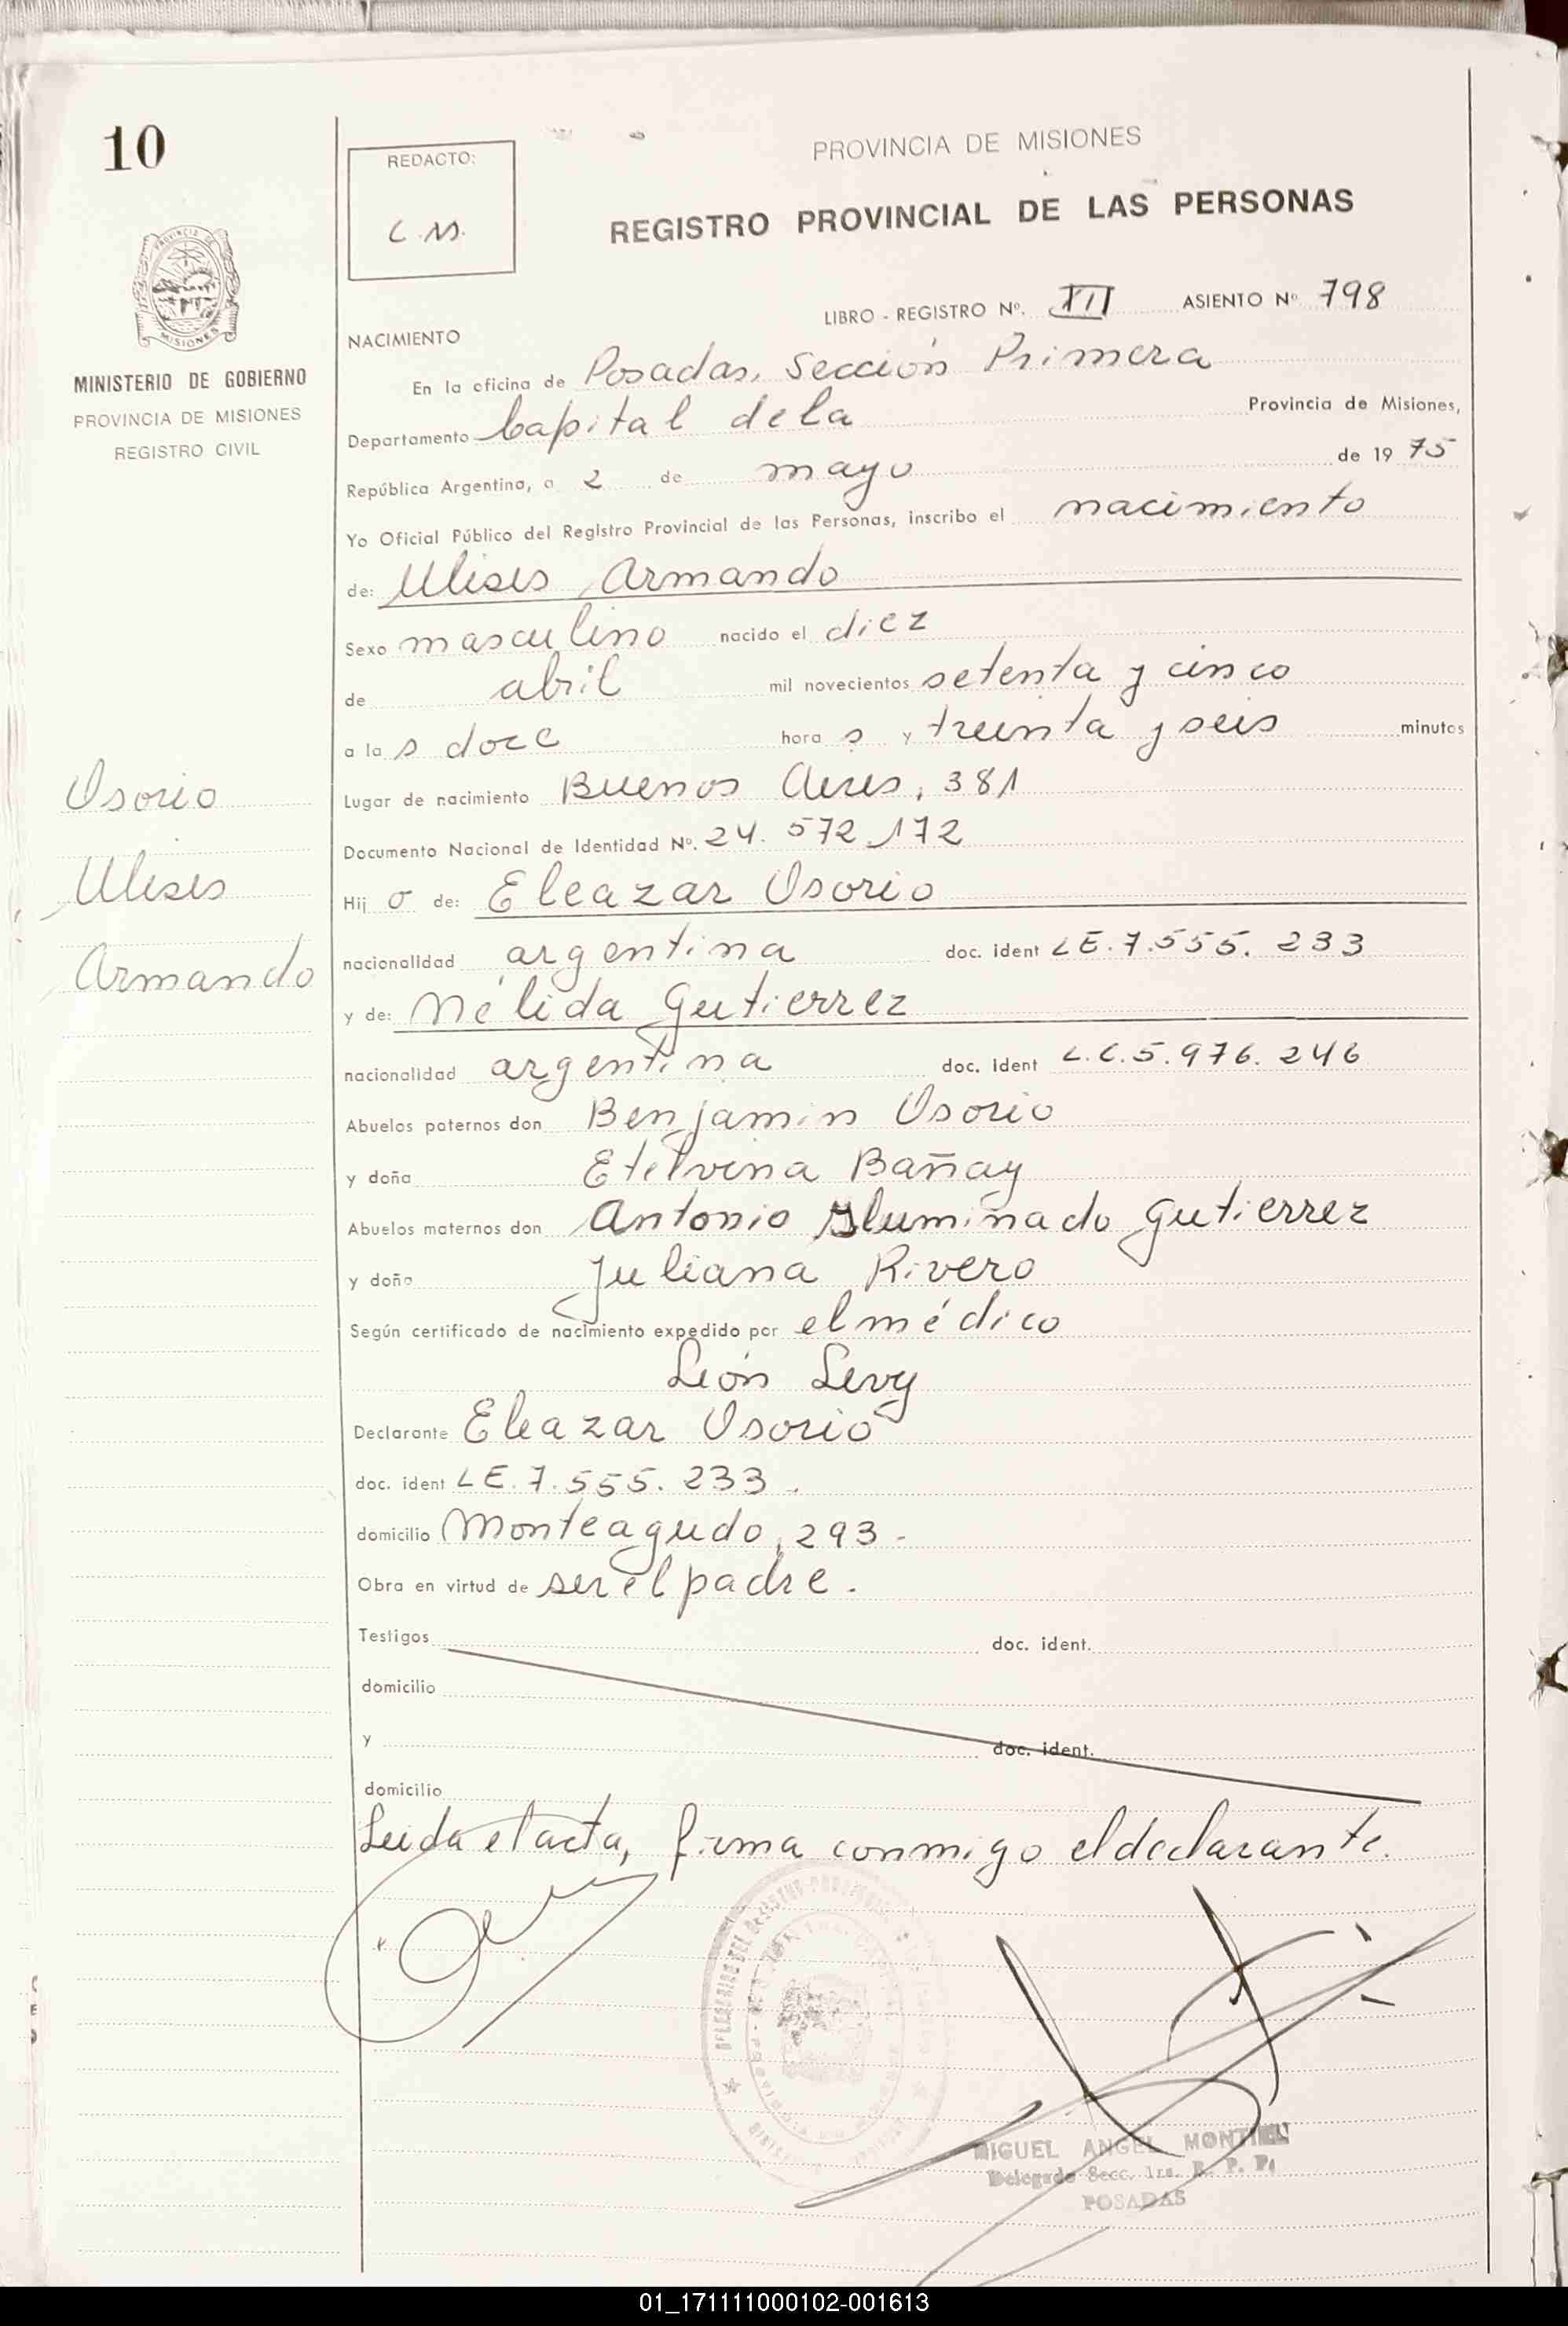 10
REDACTO:
C.M.
PROVINCIA DE MISIONES
REGISTRO PROVINCIAL DE LAS PERSONAS
PROVINCIA DE
MISIONES
MINISTERIO DE GOBIERNO
PROVINCIA DE MISIONES
REGISTRO CIVIL
LIBRO - REGISTRO Nº. XII ASIENTO Nº 798
NACIMIENTO
En la oficina de Posadas, Sección Primera
Departamento Capital de la Provincia de Misiones,
República Argentina, a 2 de mayo de 19 75
Yo Oficial Público del Registro Provincial de las Personas, inscribo el nacimiento
de: Ulises Armando
Sexo masculino nacido el diez
de abril mil novecientos setenta y cinco
a la s doce hora s y treinta y seis minutos
Lugar de nacimiento Buenos Aires, 381
Documento Nacional de Identidad Nº. 24.572.172
Hij o de: Eleazar Osorio
nacionalidad argentina doc. ident LE.7.555.233
y de: Nélida Gutierrez
nacionalidad argentina doc. ident L.C.5.976.246
Abuelos paternos don Benjamin Osorio
y doña Etelvina Bañay
Abuelos maternos don Antonio Iluminado Gutierrez
y doña Juliana Rivero
Según certificado de nacimiento expedido por el médico
León Levy
Declarante Eleazar Osorio
doc. ident LE.7.555.233.
domicilio Monteagudo, 293-
Obra en virtud de ser el padre.
Testigos doc. ident.
domicilio
y doc. ident.
domicilio
Leida el acta, firma conmigo el declarante.
Osorio
Ulises
Armando
MIGUEL ANGEL MONTIEL
Delegado Secc. 1ra. R. P. P.
POSADAS
01_171111000102-001613